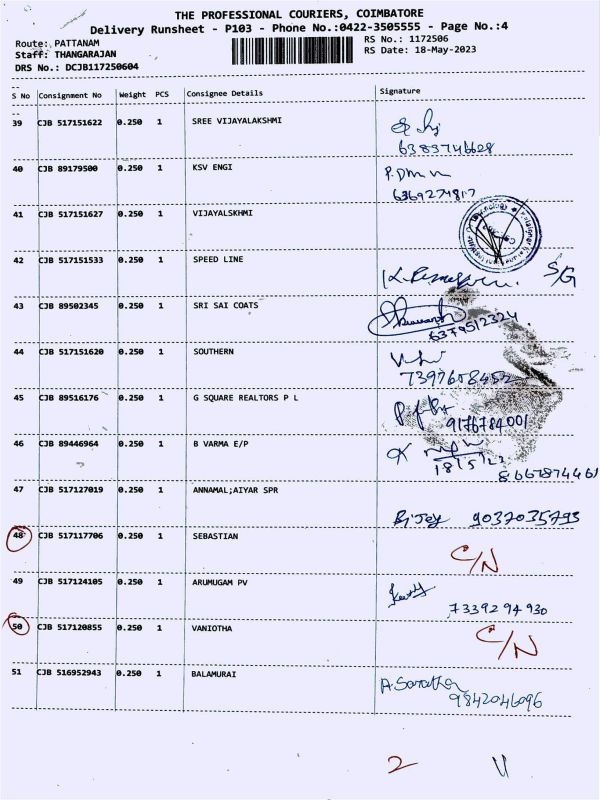 THE PROFESSIONAL COURIERS, COIMBATORE
Delivery Runsheet - P103 - Phone No.:0422-3505555 - Page No.:4
Route: PATTANAM
RS No.: 1172506
Staff: THANGARAJAN
RS Date: 18-May-2023
DRS No.: DCJB117250604
S No Consignment No Weight PCS Consignee Details Signature
39 CJB 517151622 0.250 1 SREE VIJAYALAKSHMI
6383746628
40 CJB 89179500 0.250 1 KSV ENGI
6369274817
41 CJB 517151627 0.250 1 VIJAYALSKHMI
42 CJB 517151533 0.250 1 SPEED LINE
S/G
43 CJB 89502345 0.250 1 SRI SAI COATS
6379512324
44 CJB 517151620 0.250 1 SOUTHERN
7397608452
45 CJB 89516176 0.250 1 G SQUARE REALTORS P L
9176784001
46 CJB 89446964 0.250 1 B VARMA E/P
18/5/23
8667874461
47 CJB 517127019 0.250 1 ANNAMAL;AIYAR SPR
Bijoy 9037035793
48 CJB 517117706 0.250 1 SEBASTIAN
C/N
49 CJB 517124105 0.250 1 ARUMUGAM PV
7339294930
50 CJB 517120855 0.250 1 VANIOTHA
C/N
51 CJB 516952943 0.250 1 BALAMURAI
9842046096
2 11